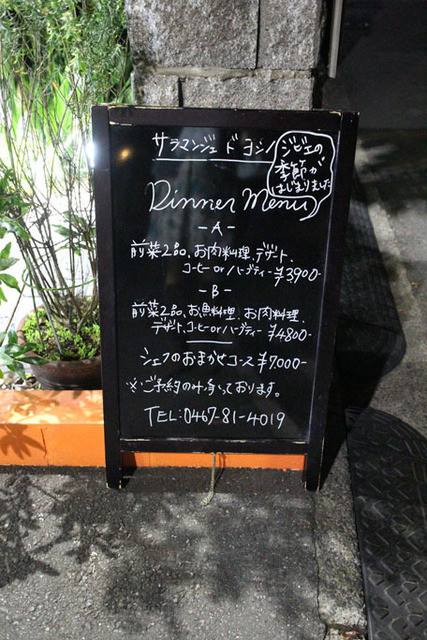 サラマンジェ ド ヨシノ
ジビエの
季節が
はじまりました
Dinner Menu
-A-
前菜2品、お肉料理、デザート、
コーヒー or ハーブティー ¥3,900-
-B-
前菜2品、お魚料理、お肉料理、
デザート、コーヒー or ハーブティー ¥4800-
シェフのおまかせコース ¥7,000-
※ご予約のみ承っております。
TEL:0467-81-4019